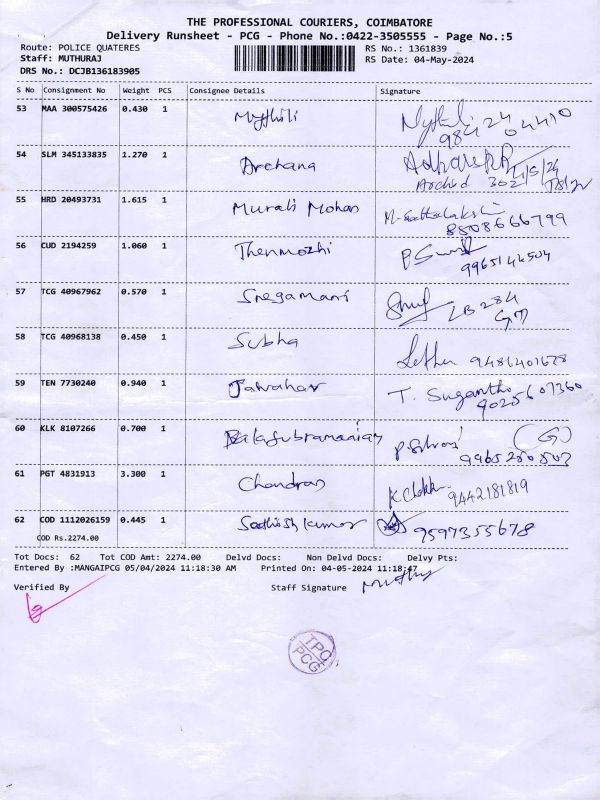 THE PROFESSIONAL COURIERS, COIMBATORE
Delivery Runsheet - PCG - Phone No.:0422-3505555 - Page No.:5
Route: POLICE QUATERES RS No.: 1361839
Staff: MUTHURAJ RS Date: 04-May-2024
DRS No.: DCJB136183905
S No Consignment No Weight PCS Consignee Details Signature
53 MAA 300575426 0.430 1 Mythili
54 SLM 345133835 1.270 1 Archana
55 HRD 20493731 1.615 1 Murali Mohan 8508666799
56 CUD 2194259 1.060 1 Thenmozhi
57 TCG 40967962 0.570 1
58 TCG 40968138 0.450 1 Subha
59 TEN 7730240 0.940 1 Jawahar T. Sugantho
9025607360
60 KLK 8107266 0.700 1 Balasubramaniam (G)
61 PGT 4831913 3.300 1 Chandran 9442181819
62 COD 1112026159 0.445 1 Sadhishkumar 9597355678
COD Rs.2274.00
Tot Docs: 62 Tot COD Amt: 2274.00 Delvd Docs: Non Delvd Docs: Delvy Pts:
Entered By :MANGAIPCG 05/04/2024 11:18:30 AM Printed On: 04-05-2024 11:18:47
Verified By Staff Signature
TPC
PCG